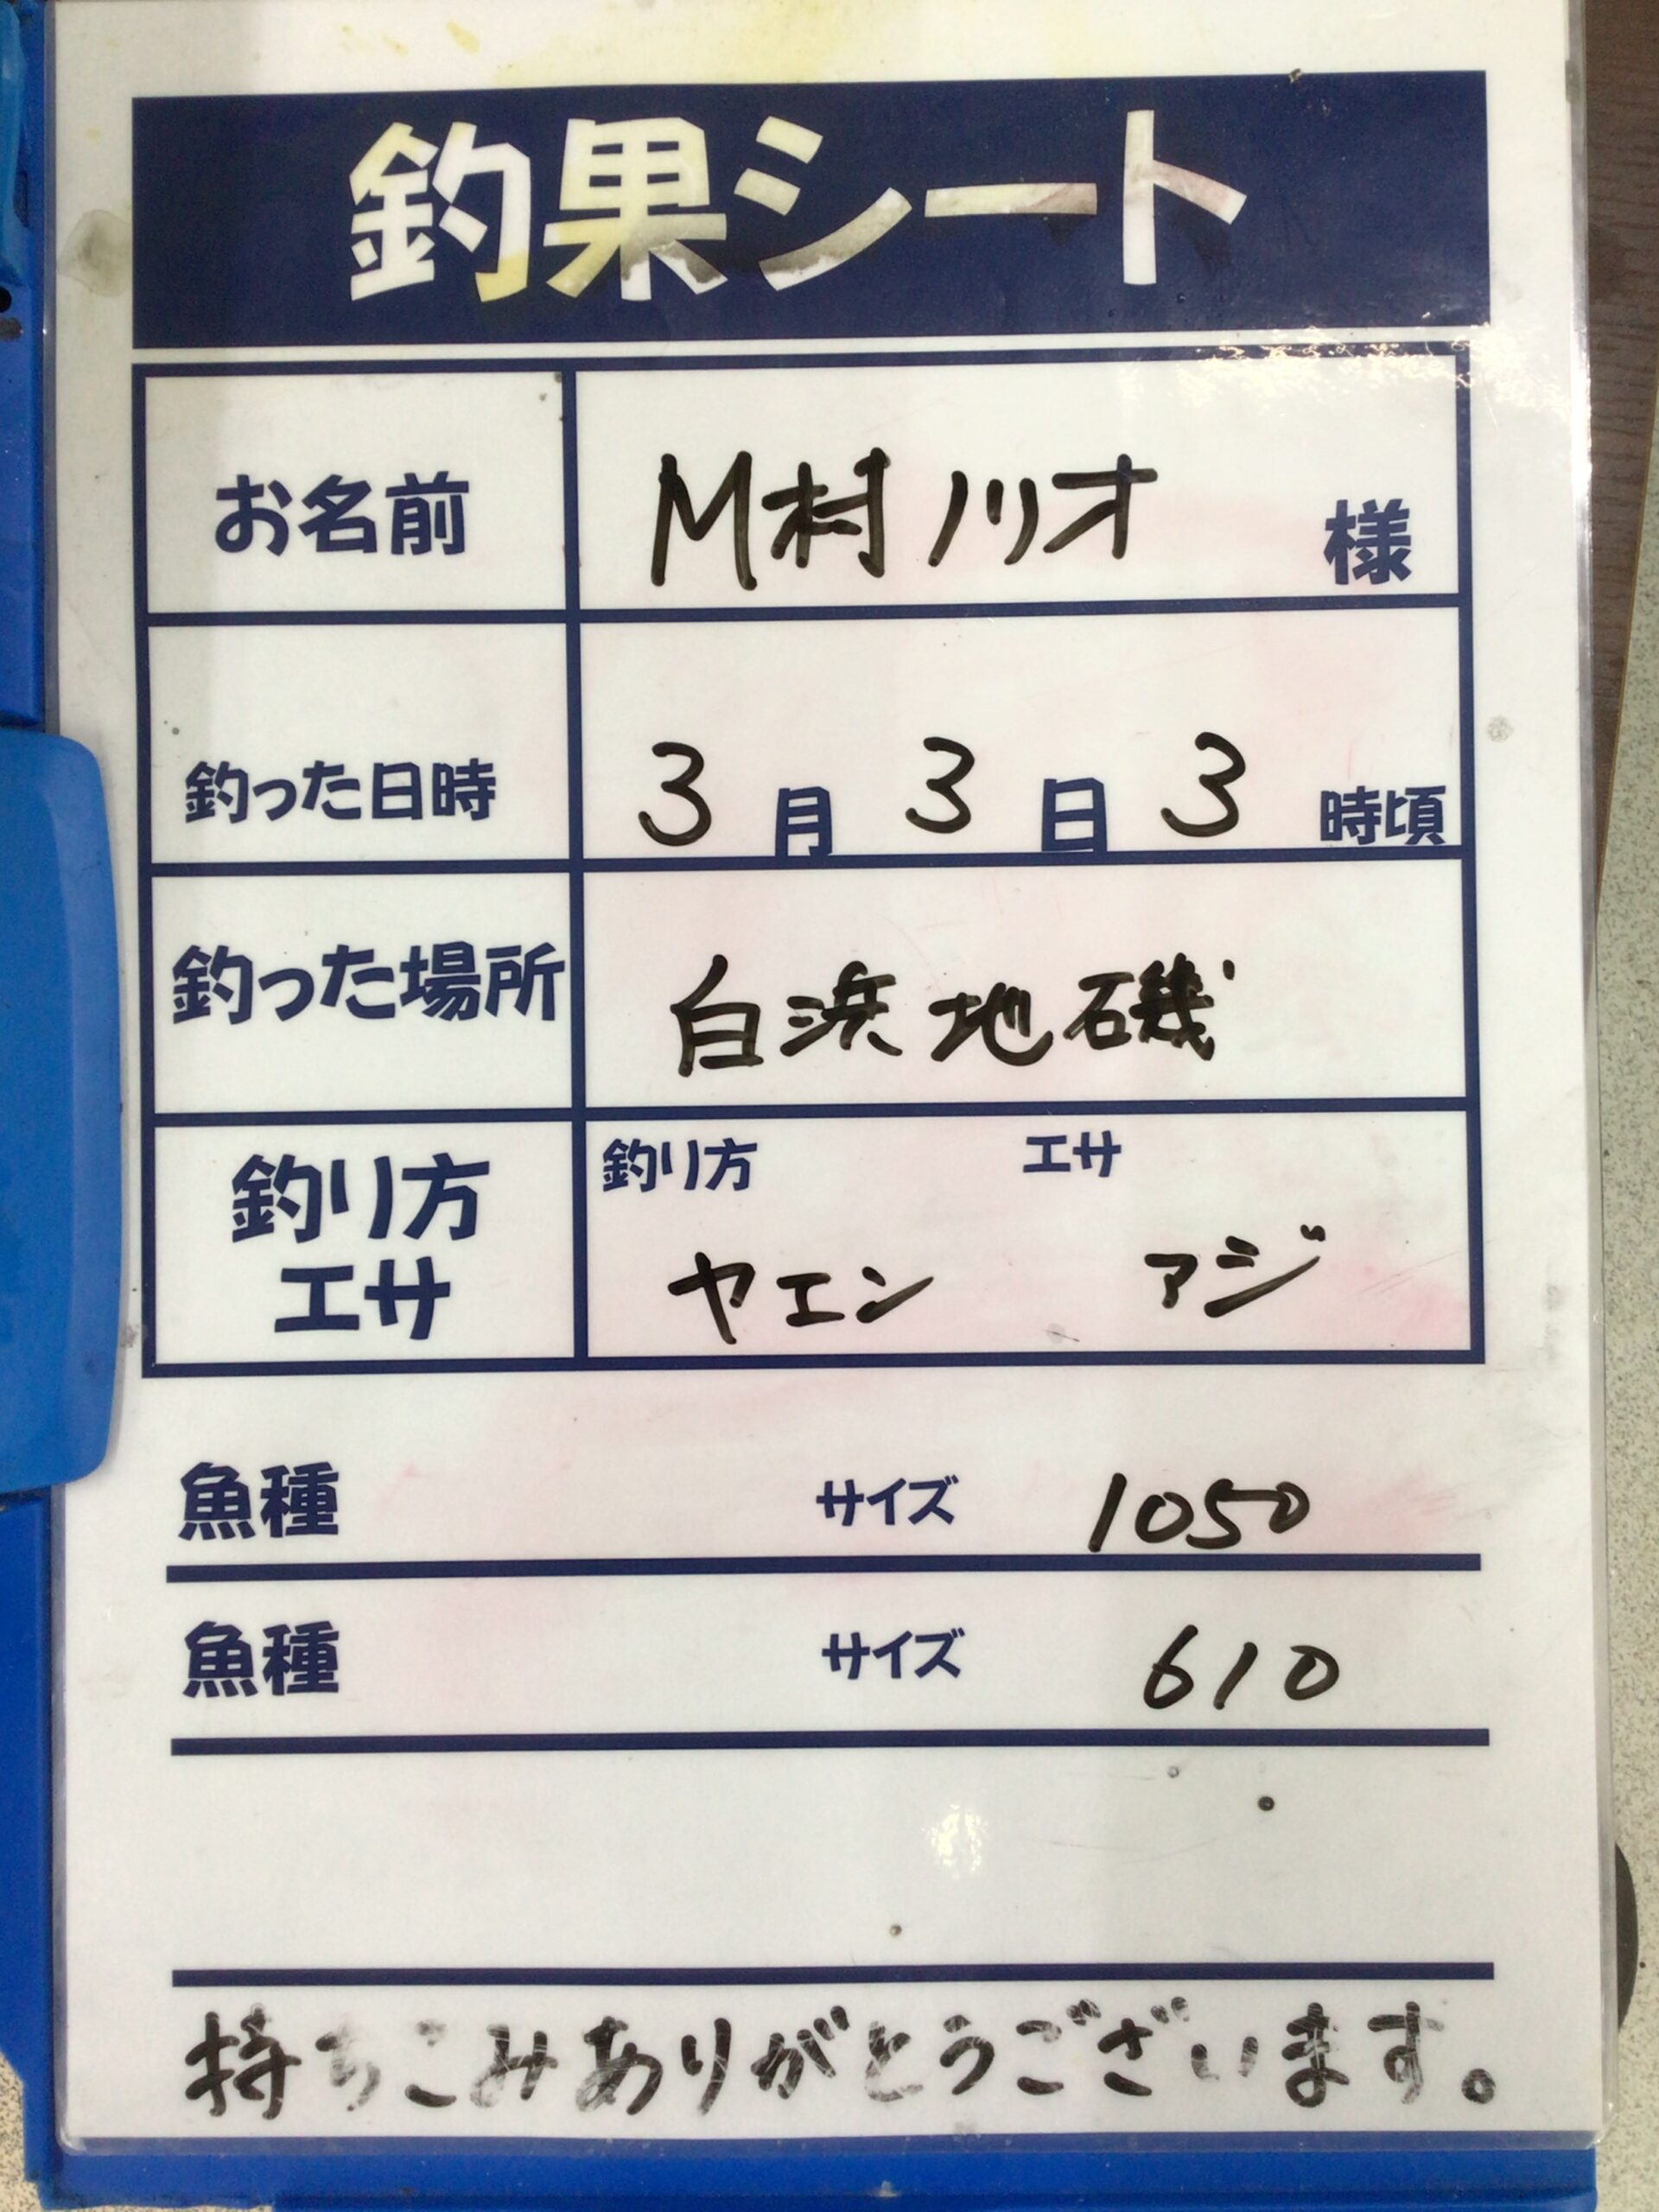 釣果シート
お名前 M村ノリオ 様
釣った日時 3月3日3時頃
釣った場所 白浜地磯
釣り方 エサ
釣り方 ヤエン
エサ アジ
魚種 サイズ 1050
魚種 サイズ 610
持ちこみありがとうございます。